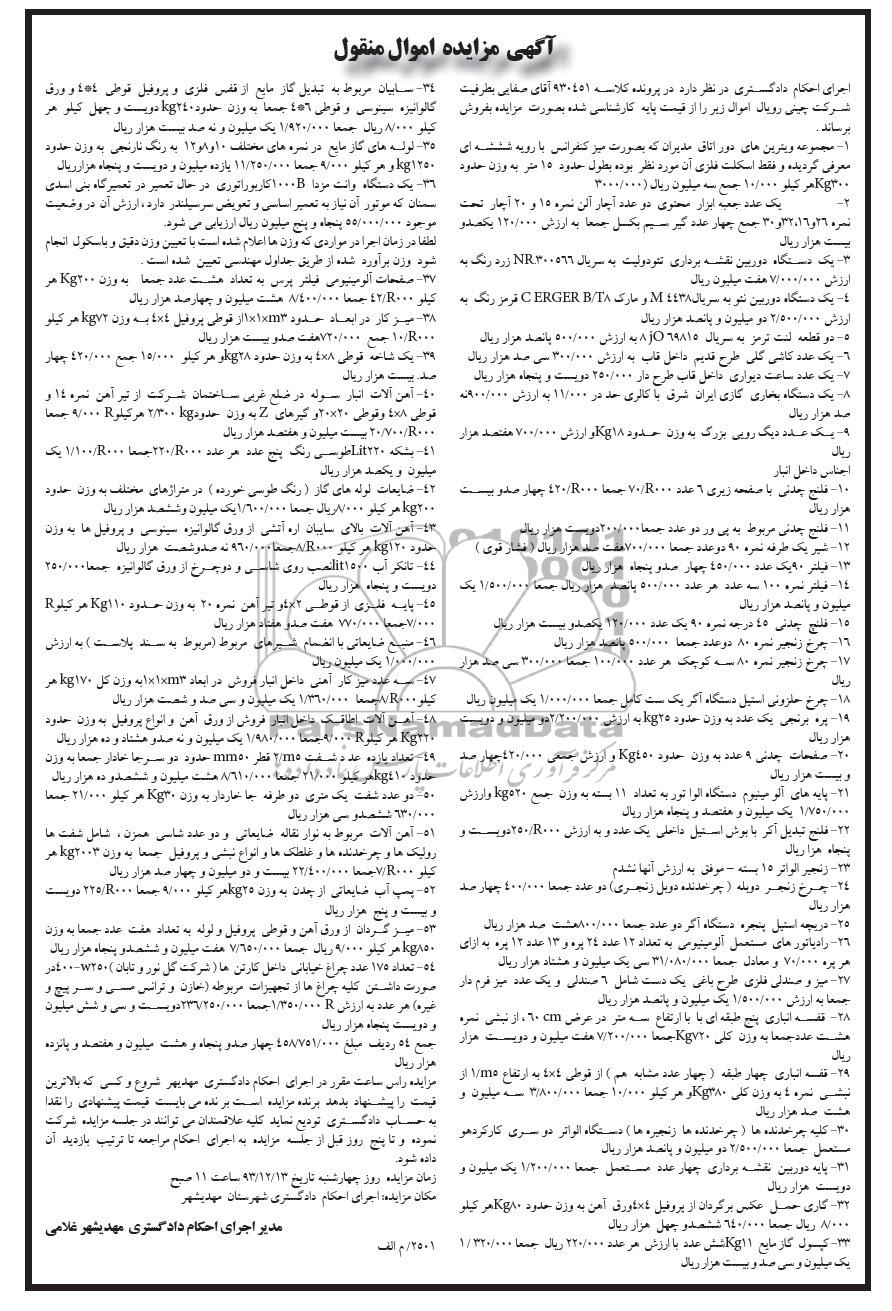 آگهی مزایده اموال منقول
اجرای احکام دادگستری در نظر دارد در پرونده کلاسه ۹۳۰۴۵۱ آقای صفایی بطرفیت
شرکت چینی رویال اموال زیر را از قیمت پایه کارشناسی شده بصورت مزایده بفروش
برساند .
۱- مجموعه ویترین های دور اتاق مدیران که بصورت میز کنفرانس با رویه شششه ای
معرفی گردیده و فقط اسکلت فلزی آن مورد نظر بوده بطول حدود ۱۵ متر به وزن حدود
Kg۳۰۰هر کیلو ۱۰/۰۰۰ جمع سه میلیون ریال (۳۰۰۰/۰۰۰
۲- یک عدد جعبه ابزار محتوی دو عدد آچار آلن نمره ۱۵ و ۲۰ آچار تحت
نمره ۲۶و۳۲،۱۶و۳۰ جمع چهار عدد گیر سیم بکسل جمعا به ارزش ۱۲۰/۰۰۰ یکصدو
بیست هزار ریال
۳- یک دستگاه دوربین نقشه برداری تئودولیت به سریال NR.۳۰۰۵۶۶ زرد رنگ به
ارزش ۷/۰۰۰/۰۰۰ هفت میلیون ریال
۴- یک دستگاه دوربین نئو به سریال۴۴۳۸ M و مارک C ERGER B/T۸ قرمز رنگ به
ارزش ۲/۵۰۰/۰۰۰ دو میلیون و پانصد هزار ریال
۵- دو قطعه لنت ترمز به سریال ۶۹۸۱۵ ۸ jO به ارزش ۵۰۰/۰۰۰ پانصد هزار ریال
۶- یک عدد کاشی گلی طرح قدیم داخل قاب به ارزش ۳۰۰/۰۰۰ سی صد هزار ریال
۷- یک عدد ساعت دیواری داخل قاب طرح دار ۲۵۰/۰۰۰ دویست و پنجاه هزار ریال
۸- یک دستگاه بخاری گازی ایران شرق با کالری حد در ۱۱/۰۰۰ به ارزش ۹۰۰/۰۰۰نه
صد هزار ریال
۹- یک عدد دیگ رویی بزرگ به وزن حدود Kg۱۸و ارزش ۷۰۰/۰۰۰ هفتصد هزار
ریال
اجناس داخل انبار
۱۰- فلنج چدنی با صفحه زیری ۶ عدد ۷۰/R۰۰۰ جمعا ۴۲۰/R۰۰۰ چهار صدو بیست
هزار ریال
۱۱- فلنج چدنی مربوط به پی ور دو عدد جمعا۲۰۰/۰۰۰دویست هزار ریال
۱۲- شیر یک طرفه نمره ۹۰ دوعدد جمعا ۷۰۰/۰۰۰هفت صد هزار ریال ( فشار قوی )
۱۳- فیلتر ۹۰یک عدد ۴۵۰/۰۰۰ چهار صدو پنجاه هزار ریال
۱۴- فیلتر نمره ۱۰۰ سه عدد هر عدد ۵۰۰/۰۰۰ پانصد هزار ریال جمعا ۱/۵۰۰/۰۰۰ یک
میلیون و پانصد هزار ریال
۱۵- فلنج چدنی ۴۵ درجه نمره ۹۰ یک عدد ۱۲۰/۰۰۰ یکصدو بیست هزار ریال
۱۶- چرخ زنجیر نمره ۸۰ دوعدد جمعا ۵۰۰/۰۰۰ پانصد هزار ریال
۱۷- چرخ زنجیر نمره ۸۰ سه کوچک هر عدد ۱۰۰/۰۰۰ جمعا ۳۰۰/۰۰۰ سی صد هزار
ریال
۱۸- چرخ حلزونی استیل دستگاه آگر یک ست کامل جمعا ۱/۰۰۰/۰۰۰ یک میلیون ریال
۱۹- پره برنجی یک عدد به وزن حدود kg۲۵ به ارزش ۲/۲۰۰/۰۰۰دو میلیون و دویست
هزار ریال
۲۰- صفحات چدنی ۹ عدد به وزن حدود Kg۴۵۰ و ارزش جمعی ۴۲۰/۰۰۰چهار صد
و بیست هزار ریال
۲۱- پایه های آلو مینیوم دستگاه الوا تور به تعداد ۱۱ بسته به وزن جمع kg۵۲۰ وارزش
۱/۷۵۰/۰۰۰ یک میلیون و هفتصد و پنجاه هزار ریال
۲۲- فلنج تبدیل آکر با بوش استیل داخلی یک عدد و به ارزش ۲۵۰/R۰۰۰دویست و
پنجاه هزا ریال
۲۳- زنجیر الواتر ۱۵ بسته – موفق به ارزش آنها نشدم
۲۴- چرخ زنجر دوبله ( چرخدنده دوبل زنجری) دو عدد جمعا ۴۰۰/۰۰۰ چهار صد
هزار ریال
۲۵- دریچه استیل پنجره دستگاه آگر دو عدد جمعا ۸۰۰/۰۰۰هشت صد هزار ریال
۲۶- رادیاتور های مستعمل آلومینیومی به تعداد ۱۲ عدد ۲۴ پره و ۱۳ عدد ۱۲ پره به ازای
هر پره ۷۰/۰۰۰ و معادل جمعا ۳۱/۰۸۰/۰۰۰ سی یک میلیون و هشتاد هزار ریال
۲۷- میز و صندلی فلزی طرح باغی یک دست شامل ۶ صندلی و یک عدد میز فرم دار
جمعا به ارزش ۱/۵۰۰/۰۰۰ یک میلیون و پانصد هزار ریال
۲۸- قفسه انباری پنج طبقه ای با با ارتفاع سه متر در عرض ۶۰ cm ، از نبشی نمره
هشت عددجمعا به وزن کلی Kg۷۲۰جمعا ۷/۲۰۰/۰۰۰ هفت میلیون و دویست هزار
ریال
۲۹- قفسه انباری چهار طبقه ( چهار عدد مشابه هم ) از قوطی ۴×۴ به ارتفاع ۱/m۵ از
نبشی نمره ۴ به وزن کلی Kg۳۸۰و هر کیلو ۱۰/۰۰۰ جمعا ۳/۸۰۰/۰۰۰ سه میلیون و
هشت صد هزار ریال
۳۰- کلیه چرخدنده ها ( چرخدنده ها زنجیره ها ) دستگاه الواتر دو سری کارکردهو
مستعمل جمعا ۲/۵۰۰/۰۰۰ دو میلیون و پانصد هزار ریال
۳۱- پایه دوربین نقشه برداری چهار عدد مستعمل جمعا ۱/۲۰۰/۰۰۰ یک میلیون و
دویست هزار ریال
۳۲- گاری حمل عکس برگردان از پروفیل ۴×۴ورق آهن به وزن حدود Kg۸۰هر کیلو
۸/۰۰۰ ریال جمعا ۶۴۰/۰۰۰ ششصدو چهل هزار ریال
۳۳- کپسول گاز مایع Kg۱۱شش عدد با ارزش هر عدد ۲۲۰/۰۰۰ ریال جمعا ۳۲۰/۰۰۰ /۱
یک میلیون و سی صد و بیست هزار ریال
۳۴- سایبان مربوط به تبدیل گاز مایع از قفس فلزی و پروفیل قوطی ۴*۴ و ورق
گالوانیزه سینوسی و قوطی ۶*۴ جمعا به وزن حدود kg۲۴۰ دویست و چهل کیلو هر
کیلو ۸/۰۰۰ ریال جمعا ۱/۹۲۰/۰۰۰ یک میلیون و نه صد بیست هزار ریال
۳۵- لوله های گاز مایع در نمره های مختلف ۱۰و۸و۱۲ به رنگ نارنجی به وزن حدود
kg۱۲۵۰ و هر کیلو ۹/۰۰۰ جمعا ۱۱/۲۵۰/۰۰۰ یازده میلیون و دویست و پنجاه هزارریال
۳۶- یک دستگاه وانت مزدا B۱۰۰۰کاربوراتوری در حال تعمیر در تعمیرگاه بنی اسدی
سمنان که موتور آن نیاز به تعمیر اساسی و تعویض سرسیلندر دارد ، ارزش آن در وضعیت
موجود ۵۵/۰۰۰/۰۰۰ پنجاه و پنج میلیون ریال ارزیابی می شود.
لطفا در زمان اجرا در مواردی که وزن ها اعلام شده است با تعیین وزن دقیق و باسکول انجام
شود وزن برآورد شده از طریق جداول مهندسی تعیین شده است .
۳۷- صفحات آلومینیومی فیلتر پرس به تعداد هشت عدد جمعا به وزن Kg۲۰۰ هر
کیلو ۴۲/R۰۰۰ جمعا ۸/۴۰۰/۰۰۰ هشت میلیون و چهارصد هزار ریال
۳۸- میز کار در ابعاد حدود ۱×۱×m۳از قوطی پروفیل ۴×۴ به وزن kg۷۲ هر کیلو
۱۰/R۰۰۰ جمع ۷۲۰/۰۰۰هفت صدو بیست هزار ریال
۳۹- یک شاخه قوطی ۸×۴ به وزن حدود kg۲۸و هر کیلو ۱۵/۰۰۰ جمع ۴۲۰/۰۰۰ چهار
صد. بیست هزار ریال
۴۰- آهن آلات انبار سوله در ضلع غربی ساختمان شرکت از تیر آهن نمره ۱۴ و
قوطی ۸×۴ وقوطی ۲۰×۲۰و گیرهای Z به وزن حدودkg ۲/۳۰۰ هرکیلوR ۹/۰۰۰ جمعا
۲۰/۷۰۰/R۰۰۰ بیست میلیون و هفتصد هزار ریال
۴۱- بشکه Lit۲۲۰طوسی رنگ پنج عدد هر عدد ۲۲۰/R۰۰۰جمعا ۱/۱۰۰/R۰۰۰ یک
میلیون و یکصد هزار ریال
۴۲- ضایعات لوله های گاز ( رنگ طوسی خورده ) در متراژهای مختلف به وزن حدود
kg۲۰۰ هر کیلو ۸/۰۰۰ریال جمعا ۱/۶۰۰/۰۰۰یک میلیون وششصد هزار ریال
۴۳- آهن آلات بالای سایبان اره آتشی از ورق گالوانیزه سینوسی و پروفیل ها به وزن
حدود kg۱۲۰ هر کیلو ۸/R۰۰۰جمعا۹۶۰/۰۰۰ نه صدوشصت هزار ریال
۴۴- تانکر آب lit۱۵۰۰نصب روی شاسی و دوچرخ از ورق گالوانیزه جمعا۲۵۰/۰۰۰
دویست و پنجاه هزار ریال
۴۵- پایه فلزی از قوطی ۲×۴و تیر آهن نمره ۲۰ به وزن حدود Kg۱۱۰ هر کیلوR
۷/۰۰۰جمعا ۷۷۰/۰۰۰ هفت صدو هفتاد هزار ریال
۴۶- منبع ضایعاتی با انضمام شیرهای مربوط (مربوط به سند پلاست ) به ارزش
۱/۰۰۰/۰۰۰ یک میلیون ریال
۴۷- سه عدد میز کار آهنی داخل انبار فروش در ابعاد ۱×۱×m۳به وزن کل kg۱۷۰ هر
کیلو۸/R۰۰۰جمعا ۱/۳۶۰/۰۰۰ یک میلیون و سی صد و شصت هزار ریال
۴۸- آهن آلات اطاقک داخل انبار فروش از ورق آهن و انواع پروفیل به وزن حدود
Kg۲۲۰ هر کیلوR ۹/۰۰۰جمعا ۱/۹۸۰/۰۰۰ یک میلیون و نه صدو هشتاد و ده هزار ریال
۴۹- تعداد یازده عدد شفت ۲/m۵ قطر mm۵۰ حدود دو سرجا خادار جمعا به وزن
حدود kg۴۱۰هر کیلو ۲۱/۰۰۰ جمعا ۸/۶۱۰/۰۰۰ هشت میلیون و ششصدو ده هزار ریال
۵۰- دو عدد شفت یک متری دو طرفه جا خاردار به وزن Kg۳۰ هر کیلو ۲۱/۰۰۰ جمعا
۶۳۰/۰۰۰ ششصدو سی هزار ریال
۵۱- آهن آلات مربوط به نوار نقاله ضایعاتی و دو عدد شاسی همزن ، شامل شفت ها
رولیک ها و چرخدنده ها و غلطک ها و انواع نبشی و پروفیل جمعا به وزن kg۲۰۰۳ هر
کیلو ۷/R۰۰۰جمعا ۲۲/۴۰۰/۰۰۰ بیست و دو میلیون و چهار صد هزار ریال
۵۲- پمپ آب ضایعاتی از چدن به وزن kg۲۵هر کیلو ۹/۰۰۰ جمعا ۲۲۵/R۰۰۰ دویست
و بیست و پنج هزار ریال
۵۳- میز گردان از ورق آهن و قوطی پروفیل و لوله به تعداد هفت عدد جمعا به وزن
kg۸۵۰ هر کیلو ۹/۰۰۰ ریال جمعا ۷/۶۵۰/۰۰۰ هفت میلیون و ششصدو پنجاه هزار ریال
۵۴- تعداد ۱۷۵ عدد چراغ خیابانی داخل کارتن ها ( شرکت گل نور و تابان )w۲۵۰-۴۰۰در
صورت داشتن کلیه چراغ ها از تجهیزات مربوطه (خازن و ترانس مسی و سر پیچ و
غیره) هر عدد به ارزش R ۱/۳۵۰/۰۰۰جمعا ۲۳۶/۲۵۰/۰۰۰دویست و سی و شش میلیون
و دویست پنجاه هزار ریال
جمع ۵۴ ردیف مبلغ ۴۵۸/۷۵۱/۰۰۰ چهار صدو پنجاه و هشت میلیون و هفتصد و پانزده
هزار ریال
مزایده راس ساعت مقرر در اجرای احکام دادگستری مهدیهر شروع و کسی که بالاترین
قیمت را پیشنهاد بدهد برنده مزایده است بر نده می بایست قیمت پیشنهادی را نقدا
به حساب دادگستری تودیع نماید کلیه علاقمندان می توانند در جلسه مزایده شرکت
نموده و تا پنج روز قبل از جلسه مزایده به اجرای احکام مراجعه تا ترتیب بازدید آن
داده شود.
زمان مزایده روز چهارشنبه تاریخ ۹۳/۱۲/۱۳ ساعت ۱۱ صبح
مکان مزایده: اجرای احکام دادگستری شهرستان مهدیشهر
مدیر اجرای احکام دادگستری مهدیشهر غلامی
۲۵۰۱/ م الف
ParsNamadData